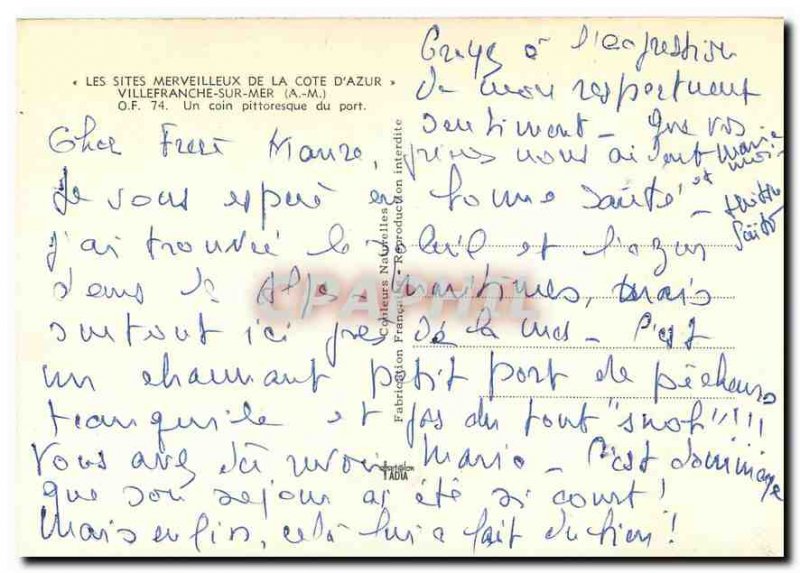 « LES SITES MERVEILLEUX DE LA COTE D'AZUR »
VILLEFRANCHE-SUR-MER (A.-M.)
O.F. 74. Un coin pittoresque du port.
Cher Frère
Je vous espère en bonne santé
j'ai trouvé le soleil et l'azur
dans les Alpes Maritimes, mais
surtout ici près de la mer - C'est
un charmant petit port de pêcheurs
tranquille et pas du tout "snob"!!!!
Vous avez dû revoir Mario - C'est dommage
que son séjour ai été si court!
Mais enfin, cela lui a fait du bien!
Croyez à l'expression
de mon respectueux
sentiment - Que vos
prières nous aident
Couleurs Naturelles
Fabrication Française - Reproduction interdite
ADIA
CPAPHIL